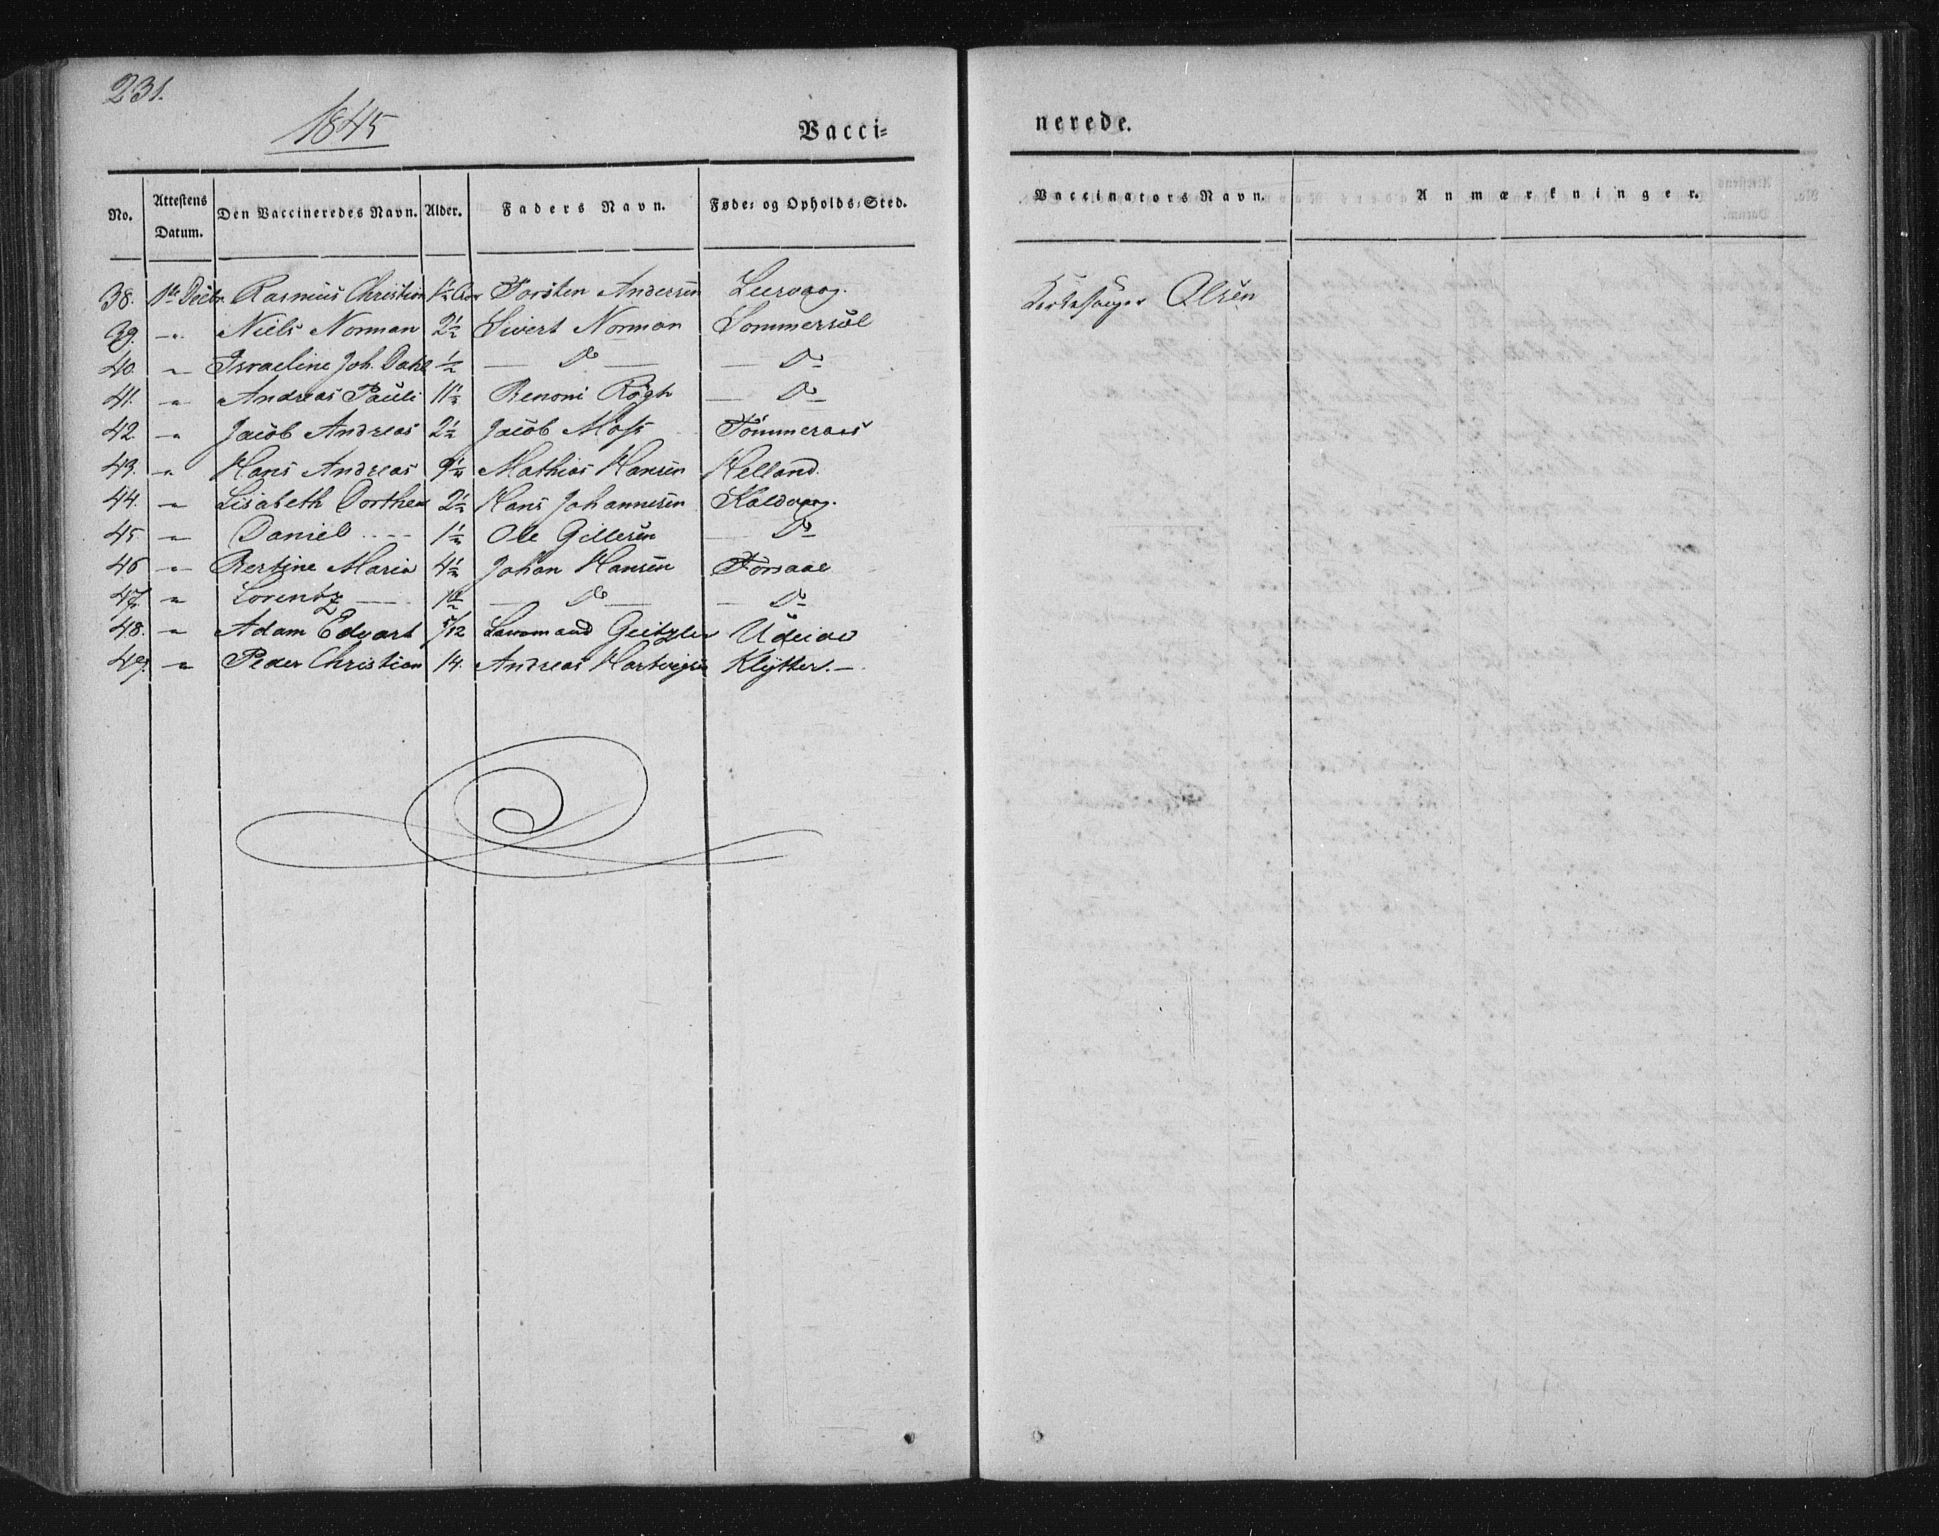 231.
1845
Vacci-
nerede.
No. Attestens Datum. Den Vaccineredes Navn. Alder. Faders Navn. Føde- og Opholds-Sted. Vaccinators Navn. Anmærkninger.
38. 1ste Decbr. Rasmus Christian 1½ Aar Torsten Andersen Leervaag. Olsen
39. " Niels Norman 2½ Sivert Norman Sommersæl
40. " Israeline Joh. Dahl ½ — Do — — Do
41. " Andreas Pauli 11½ Benoni Røgh — Do
42. " Jacob Andreas 2½ Jacob Moss Tømmeraas
43. " Hans Andreas 9½ Mathias Hansen Helland.
44. " Lisabeth Dorthea 2½ Hans Johannesen Kaldvaag.
45 " Daniel 1½ Ole Gillesen — Do
46 " Bertine Maria 4½ Johan Hansen Forsaae
47. " Lorentz — 1½ — Do — — Do
48. " Adam Edvart 5/12 Geitzler
49. " Peder Christian 14. Andreas Hartvigsen Klytter. —